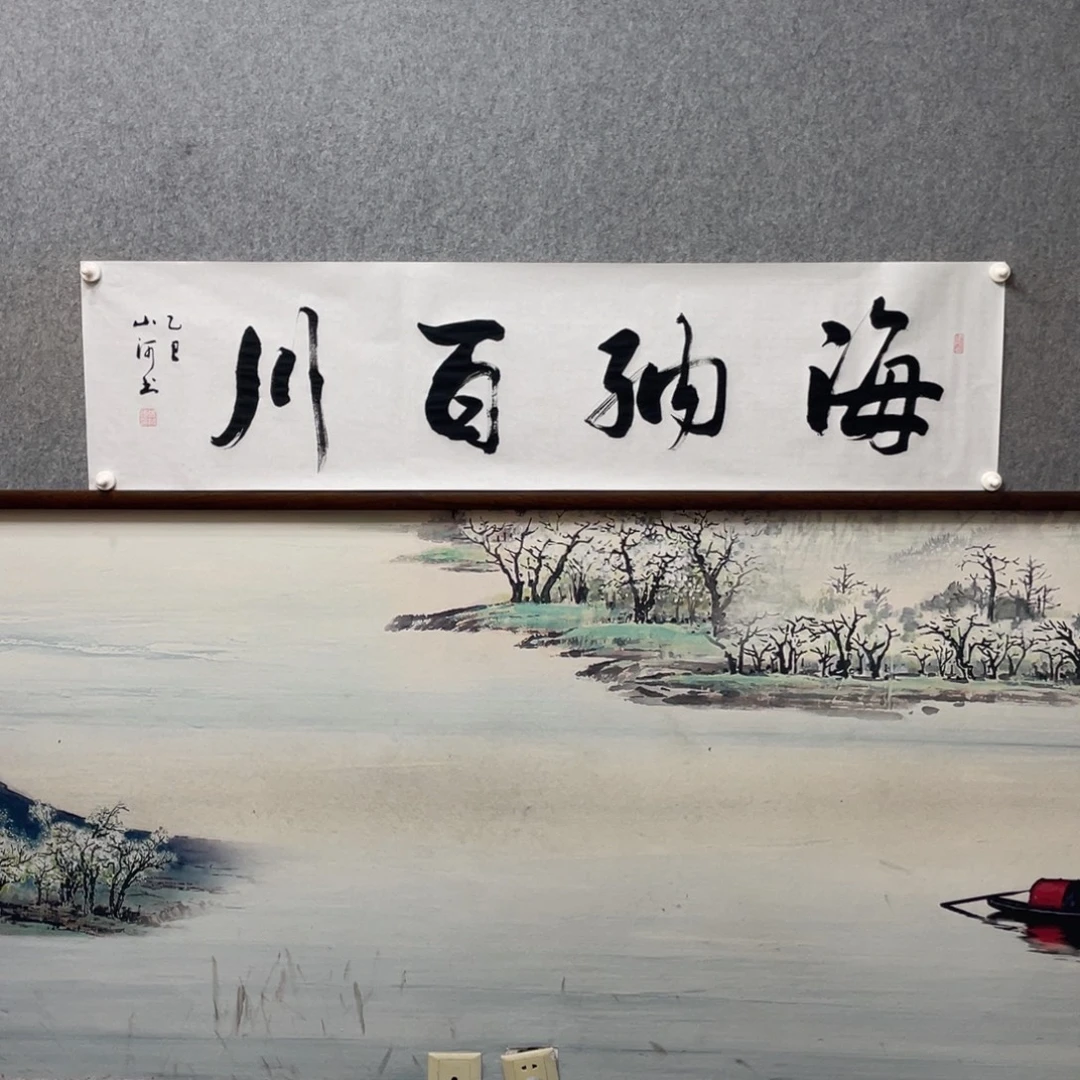 海纳百川
乙巳
山河书